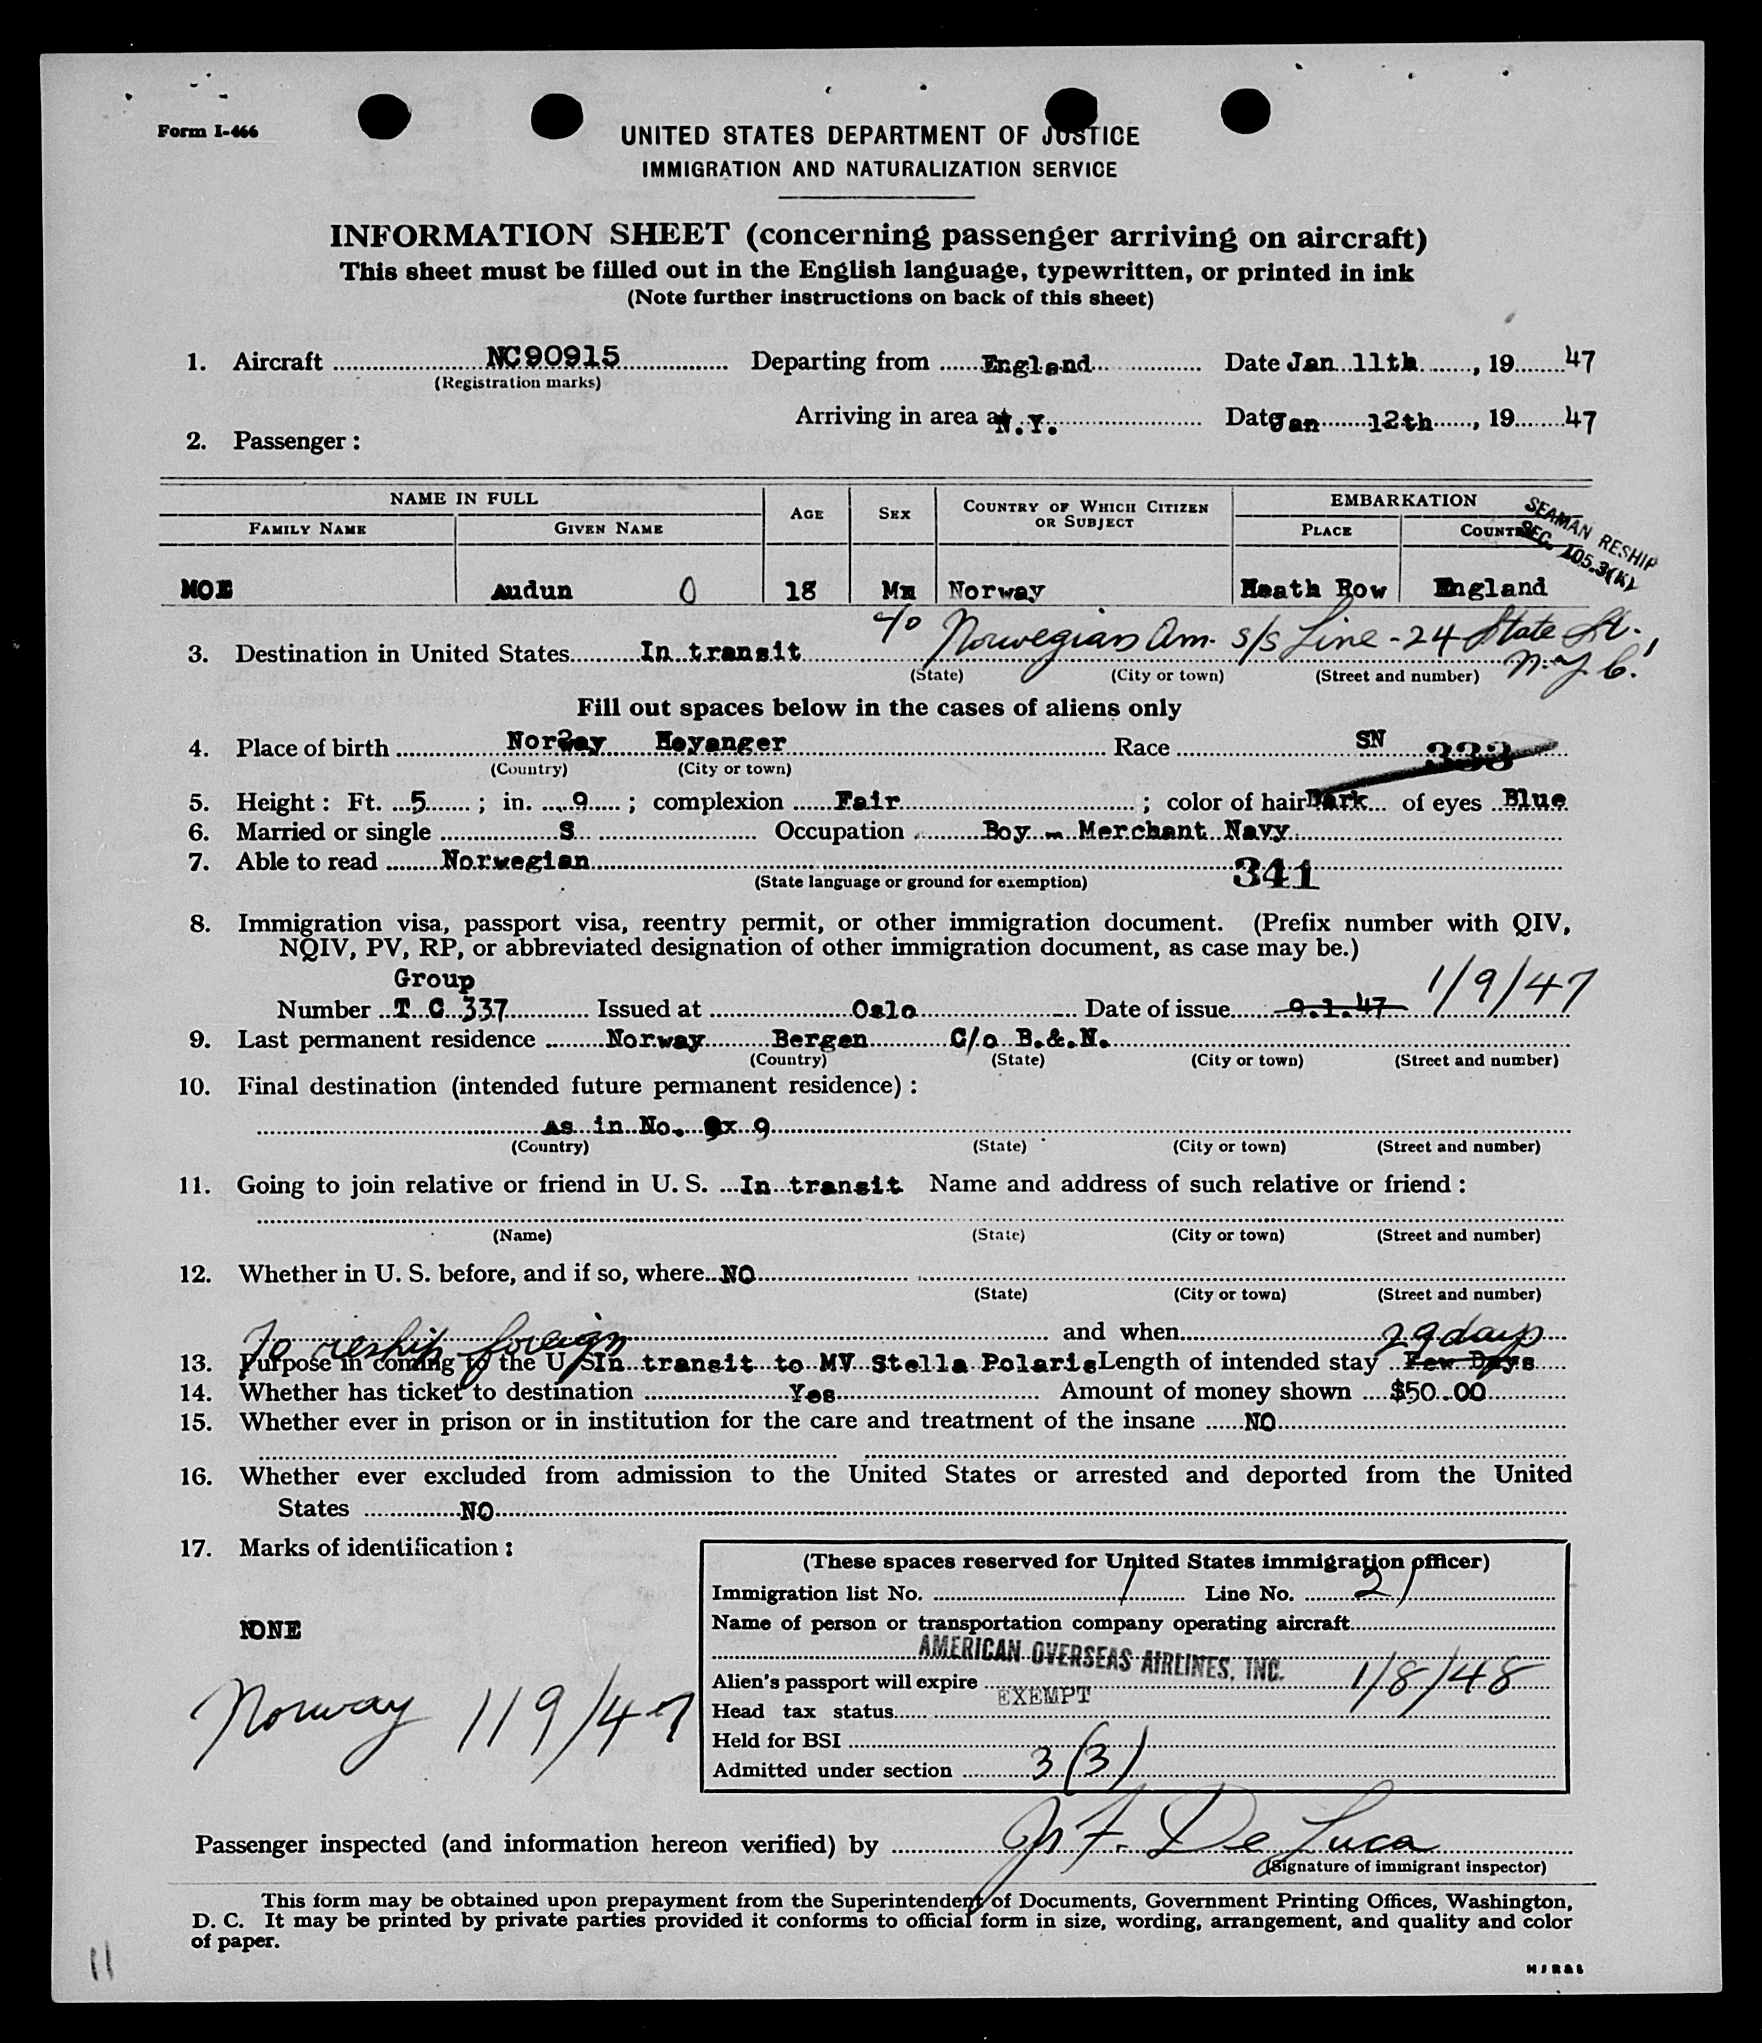 Form I-466
UNITED STATES DEPARTMENT OF JUSTICE
IMMIGRATION AND NATURALIZATION SERVICE
INFORMATION SHEET (concerning passenger arriving on aircraft)
This sheet must be filled out in the English language, typewritten, or printed in ink
(Note further instructions on back of this sheet)
1. Aircraft NC90915 Departing from England Date Jan 11th, 19 47
(Registration marks)
Arriving in area at N.Y. Date Jan 12th, 19 47
2. Passenger:
NAME IN FULL AGE SEX COUNTRY OF WHICH CITIZEN OR SUBJECT EMBARKATION
FAMILY NAME GIVEN NAME PLACE COUNTRY
SEAMAN RESHIP
SEC. 105.3(K)
MOE Audun O 18 Mm Norway Heath Row England
c/o Norwegian Am. S/S Line - 24 State St., N.Y.C.
3. Destination in United States In transit
(State) (City or town) (Street and number)
Fill out spaces below in the cases of aliens only
4. Place of birth Norway Hoyanger Race SN 333
(Country) (City or town)
5. Height: Ft. 5; in. 9; complexion Fair; color of hair Dark of eyes Blue
6. Married or single S Occupation Boy - Merchant Navy
7. Able to read Norwegian 341
(State language or ground for exemption)
8. Immigration visa, passport visa, reentry permit, or other immigration document. (Prefix number with QIV,
NQIV, PV, RP, or abbreviated designation of other immigration document, as case may be.)
Group
Number T C 337 Issued at Oslo Date of issue 9.1.47 1/9/47
9. Last permanent residence Norway Bergen C/o B.&.N.
(Country) (State) (City or town) (Street and number)
10. Final destination (intended future permanent residence):
As in No. 9x 9
(Country) (State) (City or town) (Street and number)
11. Going to join relative or friend in U. S. In transit Name and address of such relative or friend:
(Name) (State) (City or town) (Street and number)
12. Whether in U. S. before, and if so, where NO
(State) (City or town) (Street and number)
To reship foreign and when 29 days
13. Purpose in coming to the U S In transit to MV Stella Polaris Length of intended stay Few Days
14. Whether has ticket to destination Yes Amount of money shown $50.00
15. Whether ever in prison or in institution for the care and treatment of the insane NO
16. Whether ever excluded from admission to the United States or arrested and deported from the United
States NO
17. Marks of identification:
NONE
Norway 1/9/47
(These spaces reserved for United States immigration officer)
Immigration list No. 1 Line No. 21
Name of person or transportation company operating aircraft
AMERICAN OVERSEAS AIRLINES, INC.
Alien's passport will expire 1/8/48
Head tax status EXEMPT
Held for BSI
Admitted under section 3(3)
Passenger inspected (and information hereon verified) by De Luca
(Signature of immigrant inspector)
This form may be obtained upon prepayment from the Superintendent of Documents, Government Printing Offices, Washington,
D. C. It may be printed by private parties provided it conforms to official form in size, wording, arrangement, and quality and color
of paper.
11